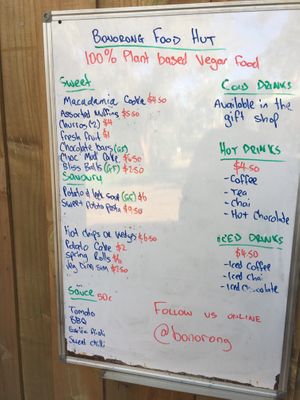 Bonorong Food Hut
100% Plant based Vegan Food
Sweet
Macadamia Cookie $4.50
Assorted Muffins $5.50
Churros (2) $4
Fresh fruit $1
Chocolate bars (GF)
Choc Mud Cake $6.50
Bliss Balls (GF) $2.50
Savoury
Potato & leek Soup (GF) $6
Sweet Potato Pasta $9.50
Hot Chips or Wedges $6.50
Potato Cake $2
Spring Rolls $6
Veg Dim Sim $2.50
Sauce 50c
Tomato
BBQ
Garlic Aioli
Sweet chilli
Cold Drinks
Available in the
gift shop
Hot Drinks
$4.50
- Coffee
- Tea
- Chai
- Hot Chocolate
Iced Drinks
$4.50
- Iced Coffee
- Iced Chai
- Iced Chocolate
Follow us online
@bonorong